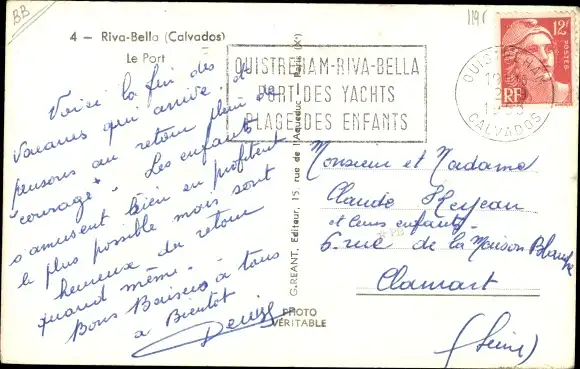 BB
1196
4 – Riva-Bella (Calvados)
Le Port
Voici la fin des
vacances qui arrive. Je
pensons au retour plein de
"courage". Les enfants
s'amusent bien en profitent
le plus possible mais sont
heureux du retour
quand même.
Bons Baisers à tous
à Bientôt
Denise
G. REANT, Editeur, 15, rue de l'Aqueduc – Paris (Xe)
PHOTO
VÉRITABLE
OUISTREHAM-RIVA-BELLA
PORT DES YACHTS
PLAGE DES ENFANTS
OUISTREHAM
CALVADOS
12F
POSTES
RF
Monsieur et Madame
Claude
et leurs enfants
6. rue de la Maison Blanche
Clamart
(Seine)